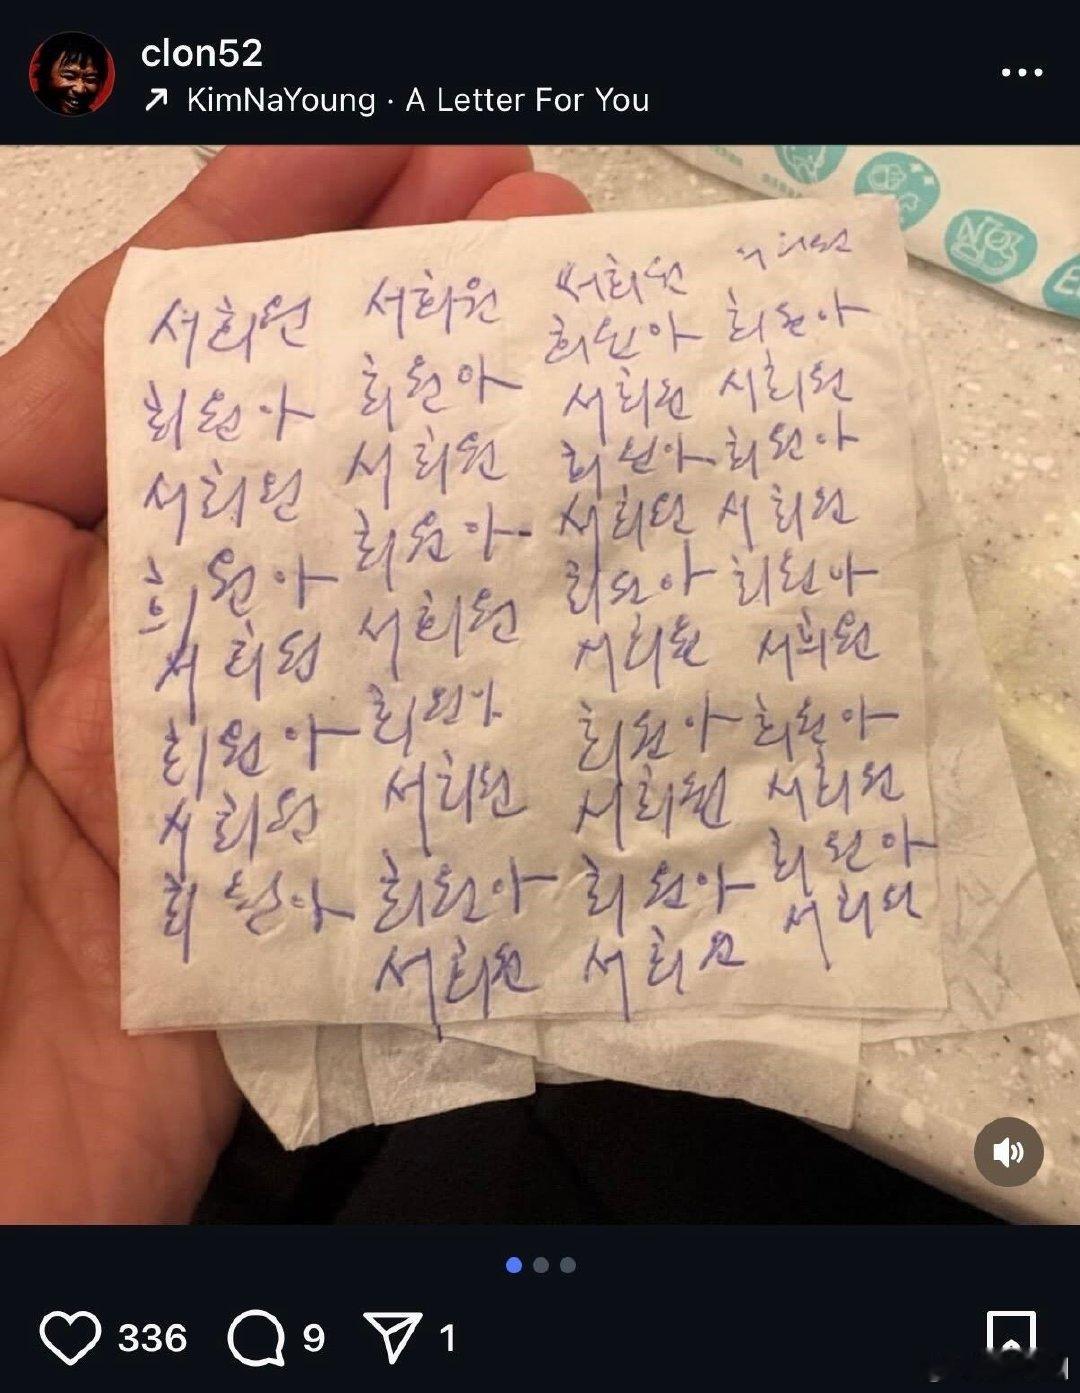 clon52
KimNaYoung · A Letter For You
서희원
희원아
서희원
희원아
서희원
희원아
서희원
희원아
서희원
희원아
서희원
희원아
서희원
희원아
서희원
희원아
서희원
서희원
희원아
서희원
희원아
서희원
희원아
서희원
희원아
서희원
희원아
서희원
서희원
희원아
서희원
희원아
서희원
희원아
서희원
희원아
서희원
희원아
서희원
NO
336
9
1